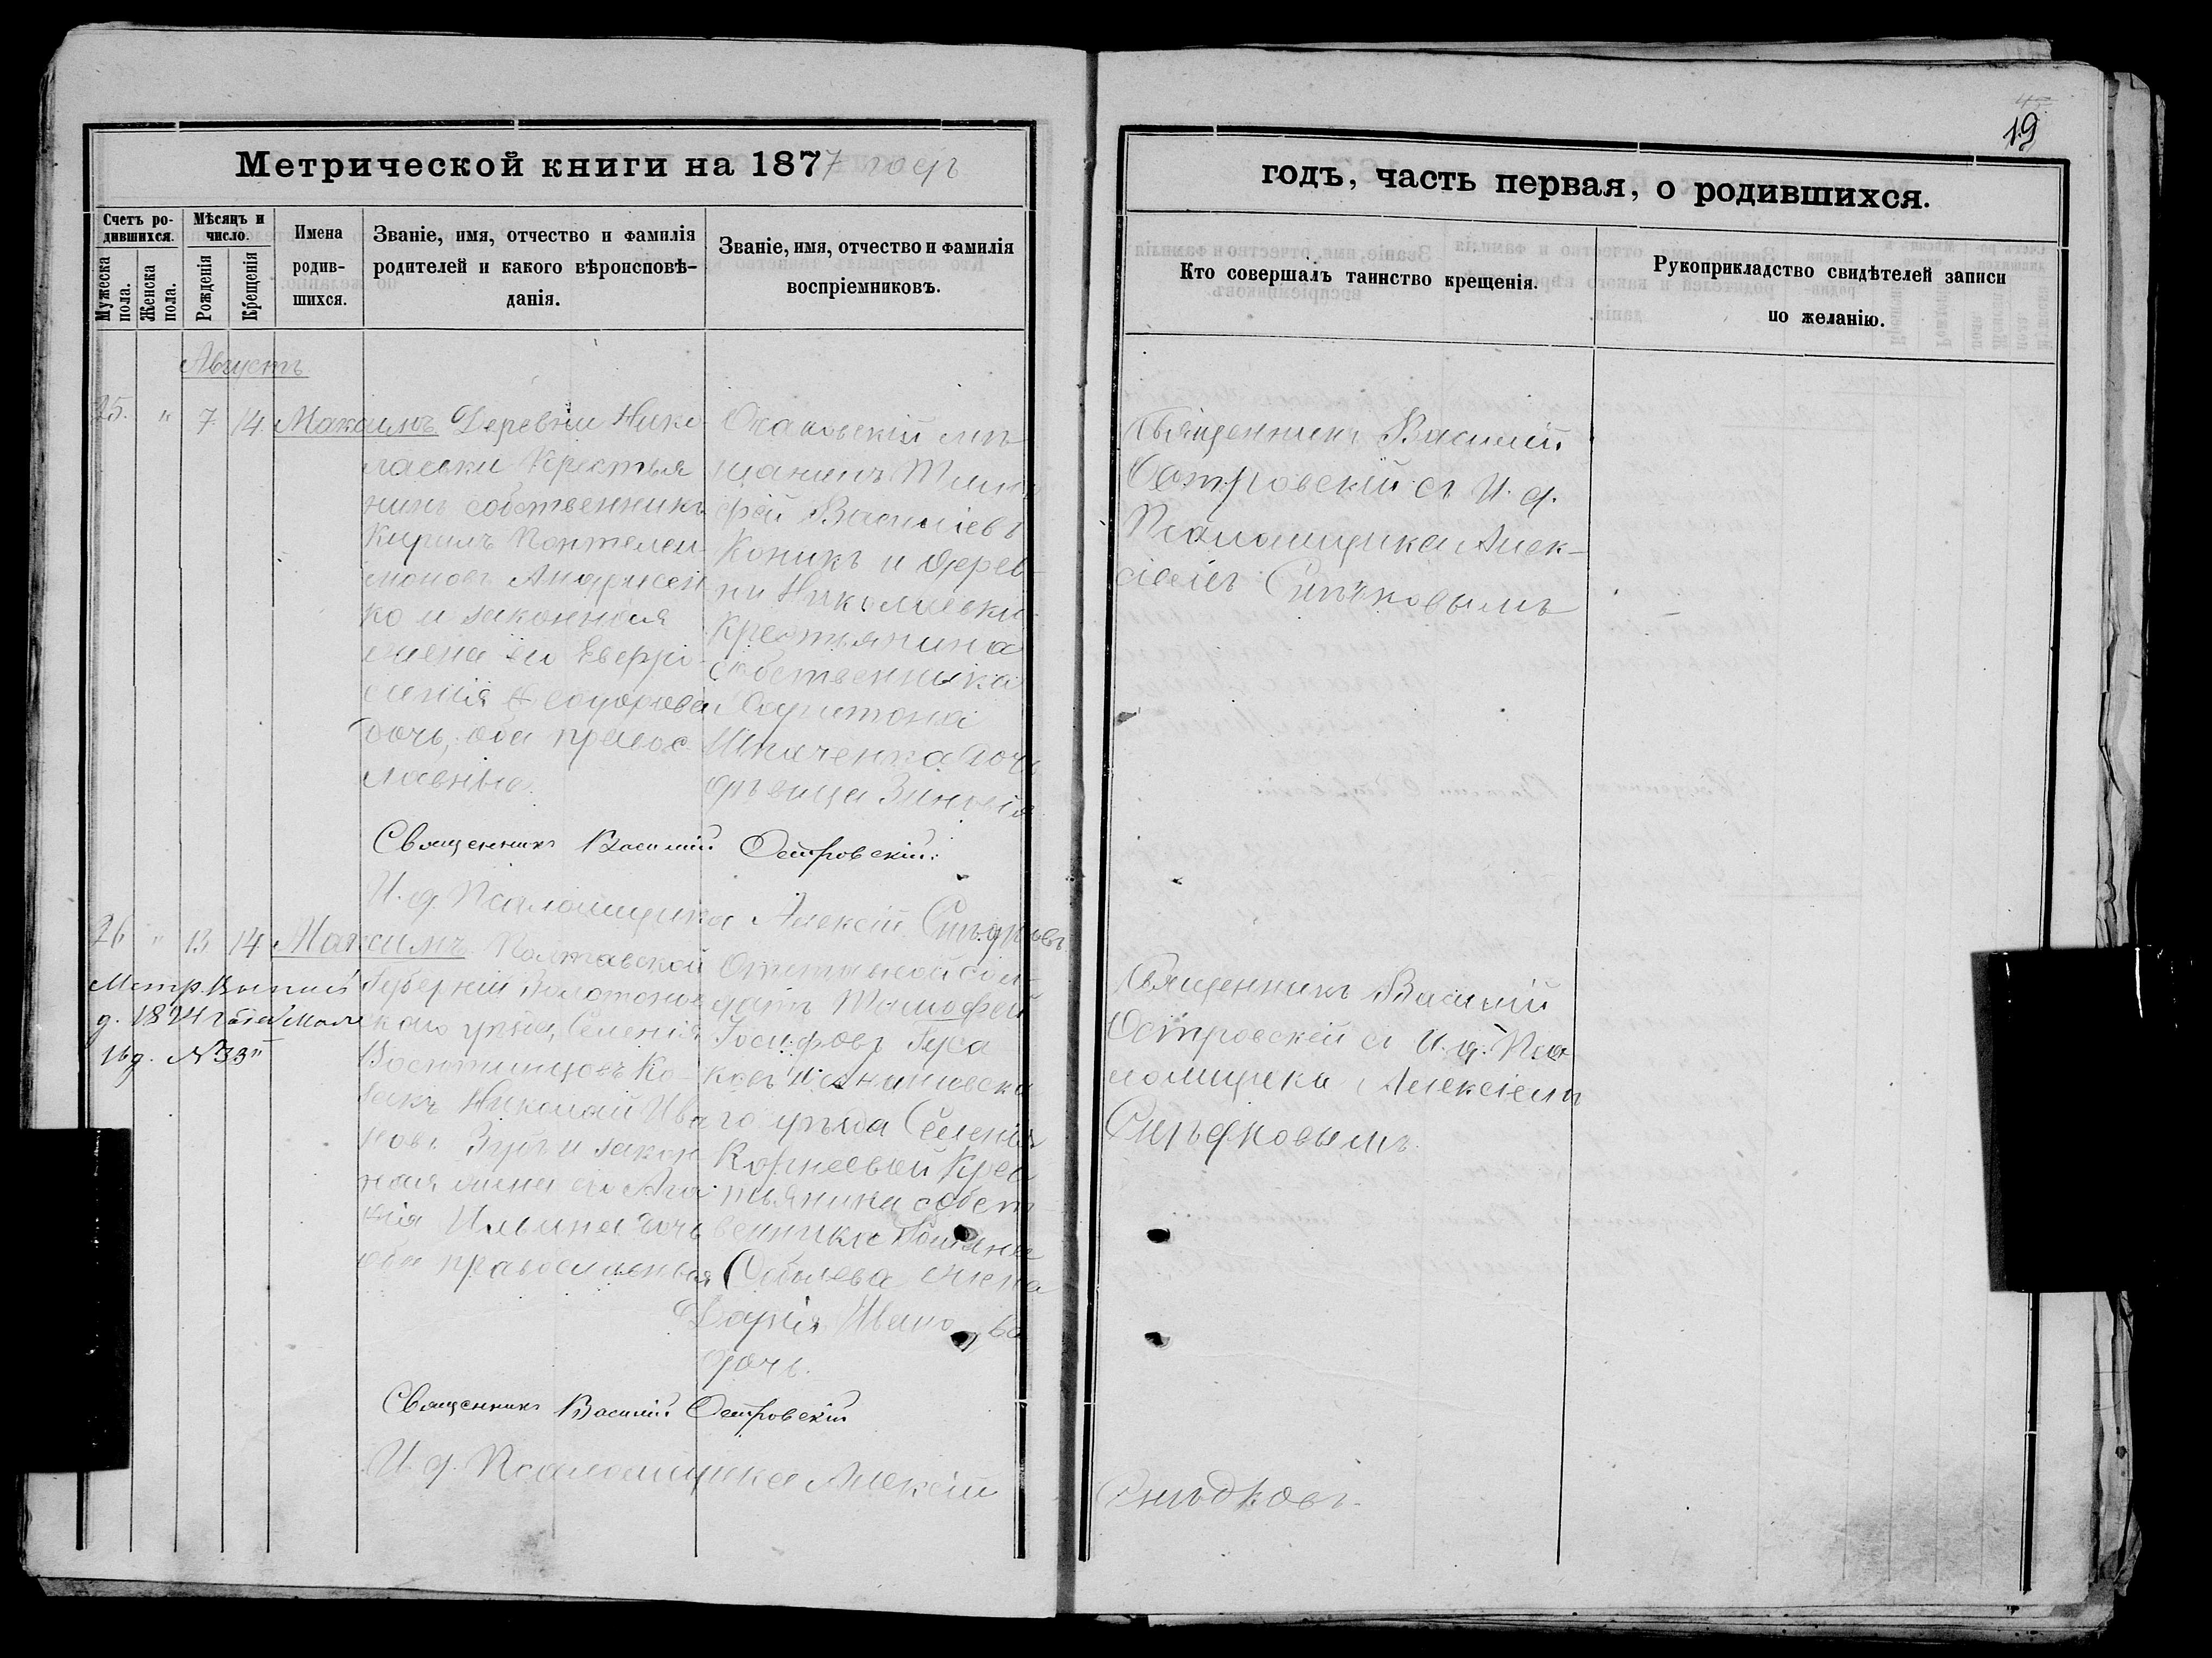 45
19
Метрической книги на 1877 годъ
годъ, часть первая, о родившихся.
Счетъ родившихся.
Мужеска пола.
Женска пола.
Мѣсяцъ и число.
Рожденія
Крещенія
Имена родив-
шихся.
Званіе, имя, отчество и фамилія
родителей и какого вѣроисповѣ-
данія.
Званіе, имя, отчество и фамилія
воспріемниковъ.
Кто совершалъ таинство крещенія.
Рукоприкладство свидѣтелей записи
по желанію.
Августъ
25. " 7. 14. Максимъ
Деревни Нико
лаевки Крестья
нинъ собственникъ
Кирилъ Пантелеи-
моновъ Андрисен
ко и законная
жена его Евфро
синія Ѳеодорова
дочь, оба правос
лавные.
мѣ
щанинъ Тимо
фей Васильевъ
Коникъ и дерев-
ни Николаевки
Крестьянина
собственника
Харитона
Шпаченка дочь
дѣвица Зиновія
Священникъ Василій
Островскій съ И. д.
Псаломщика Алек-
сіемъ Сипѣдковымъ
Священникъ Василій Островскій.
И. д. Псаломщика Алексій
26 " 13 14 Максимъ
Метр. Выпись
№33
Полтавской
Губерніи Золотонош
скаго уѣзда, Селенія
Ко-
закъ Николай Ива
новъ и закон
ная жена его Ага
ѳія Ильина дочь
оба православныя
Отставной сол-
датъ Тимофей
Іосифовъ Гуса
ковъ и
го уѣзда Селенія
Корнеевой Крес
тьянина собст-
венника
жена
Дарія Иванова
дочь.
Священникъ Василій
Островскій съ И. д. Пса-
ломщика Алексіемъ
Священникъ Василій Островскій
И. д. Псаломщика Алексій